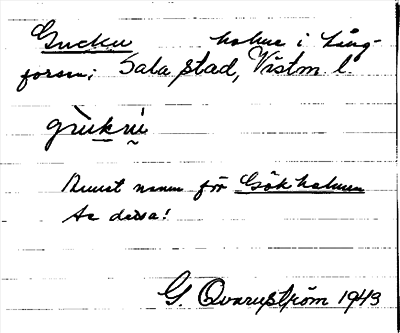 Gucku holme i Lång-
forsen; Sala stad, Västm l.
Annat namn för Gökholmen
Se dessa!
G. Qvarnström 1943